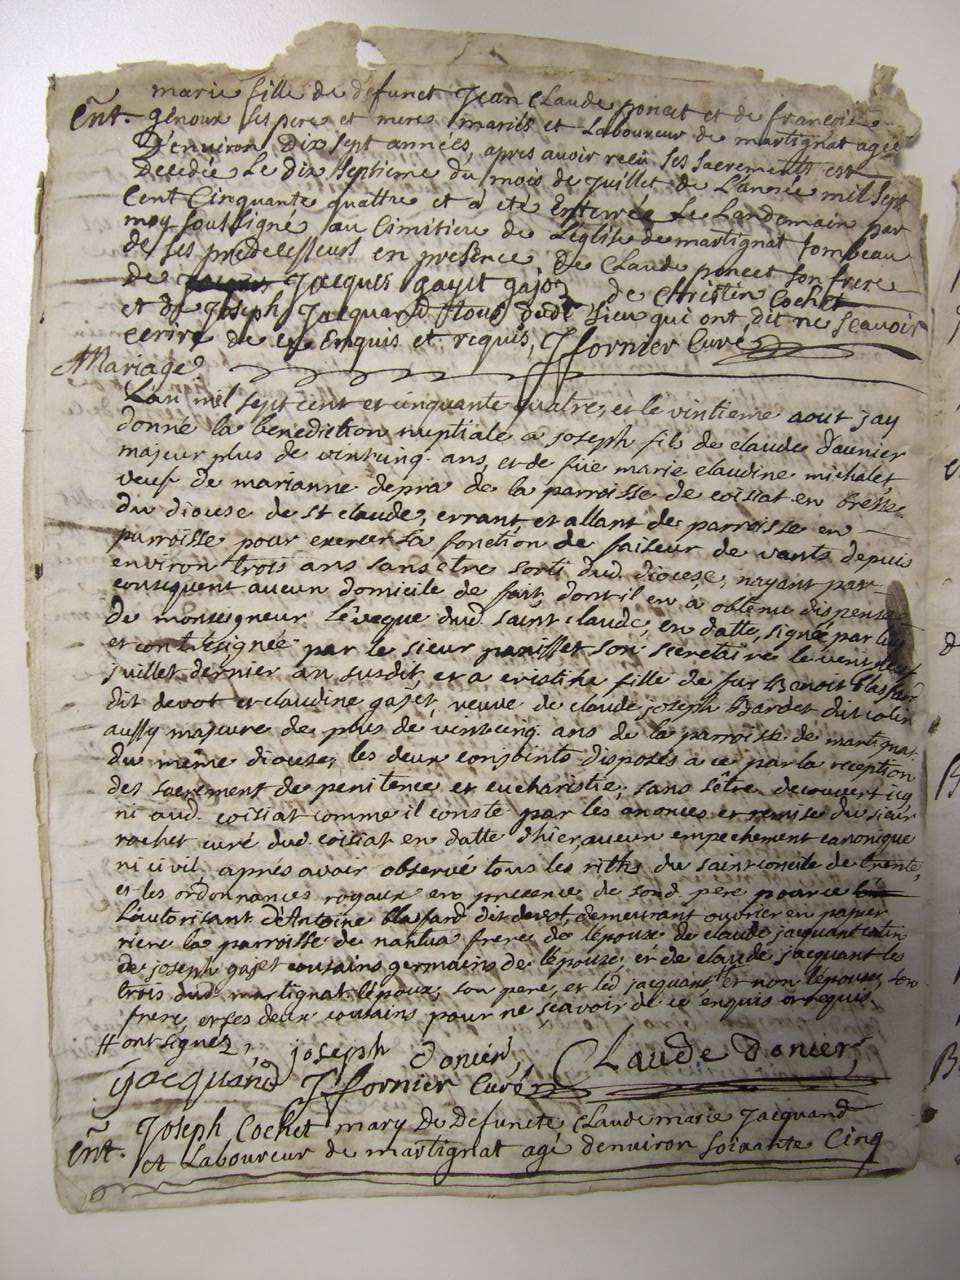 marie fille de défunct Jean Claude poncet et de francoise
Ent. genoux ses pere et mere mariés et Laboureur de martignat agée
D'environ Dix sept années, apres avoir reçû ses sacrements est
Decedée Le dix septieme du mois de juillet de L'année mil sept
Cent Cinquante quattre et a eté Enterrée Le Landemain par
moy soussigné au Cimitiere de L'eglise de martignat tombeau
de ses predecesseurs en presence de Claude poncet son frere
de Jacques gayet de Christin Cochet
et de joseph Jacquand tous dudt Lieu qui ont dit ne sçavoir
ecrire de ce Enquis et requis, Jfornier Curé
Mariage
Lan mil sept cent et cinquante quatre, et le vintieme aout jay
donné la benediction nuptiale a joseph fils de claude daunier
majeur plus de vintcinq ans, et de füe marie claudine michalet
veuf de marianne depra de la parroisse de coisiat en bresse
du diocese de st claude, errant et allant de parroisse en
parroisse pour exercer sa fonction de faiseur de vants depuis
environ trois ans sans etre sorti dud diocese, nayant par
consequent aucun domicile de fait, dont il en a obtenu dispense
de monseigneur l'eveque dud. saint claude, en datte, signée par luy
et contresignée par le sieur panisset son secretaire le vent neuf
juillet dernier an susdit, et a cristine fille de fut Benoit blasfard
dit devot et claudine gajet, veuve de claude joseph Bardet dit colin
aussy majeure de plus de vintcinq ans de la parroisse de martignat
du même diocese, les deux conjoints disposés a ce par la reception
des sacrement de penitence et eucharistie; sans s'être decouvert icy
ni aud. coisiat comme il conste par les anonces et remise du sieur
rochet curé dud. coisiat en datte d'hier aucun empechement canonique
ni civil, aprés avoir observé tous les rittes du saint concile de trente,
et les ordonnances royaux en presence de sond pere pour ce
L'autorisant d'Antoine blasfard dit devot, demeurant ouvrier en papier
riere la parroisse de nantua frere de l'epouse de claude jacquant colin
de joseph gajet cousins germains de l'epouse, et de claude jacquant les
trois dud. martignat l'epoux, son pere, et led jacquant # et non l'epouse, son
frere, et ses deux cousins pour ne sçavoir de ce enquis et requis.
# ont signez, joseph donier, Claude donier
jacquand Jfornier Curé
Joseph Cochet mary de Defuncte Claudemarie Jacquand
Ent. et Laboureur de martignat agé denviron soixante Cinq